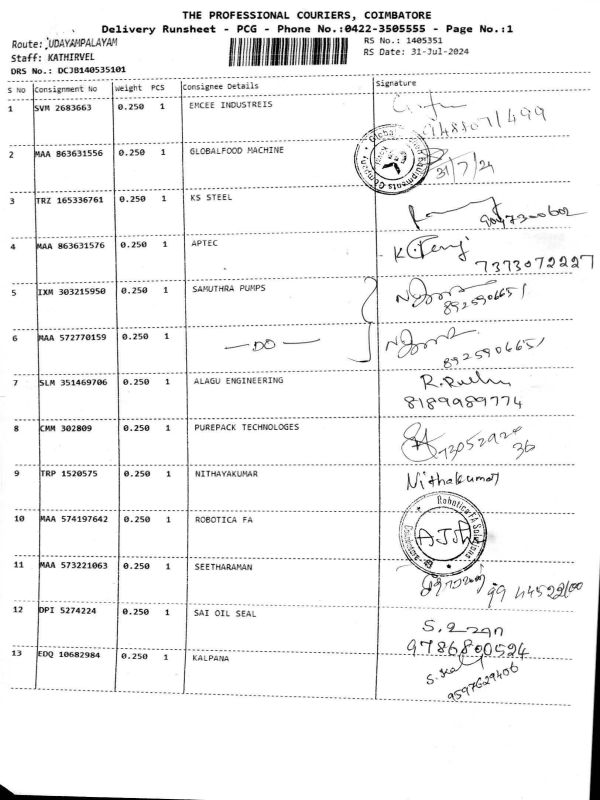 THE PROFESSIONAL COURIERS, COIMBATORE
Delivery Runsheet - PCG - Phone No.:0422-3505555 - Page No.:1
Route: UDAYAMPALAYAM RS No.: 1405351
Staff: KATHIRVEL RS Date: 31-Jul-2024
DRS No.: DCJB140535101
S No Consignment No Weight PCS Consignee Details Signature
1 SVM 2683663 0.250 1 EMCEE INDUSTREIS
2 MAA 863631556 0.250 1 GLOBALFOOD MACHINE 31/7/24
3 TRZ 165336761 0.250 1 KS STEEL
4 MAA 863631576 0.250 1 APTEC
7373072227
5 IXM 303215950 0.250 1 SAMUTHRA PUMPS
8925906651
6 MAA 572770159 0.250 1 — DO —
8925906651
7 SLM 351469706 0.250 1 ALAGU ENGINEERING
8189989774
8 CMM 302809 0.250 1 PUREPACK TECHNOLOGES
9 TRP 1520575 0.250 1 NITHAYAKUMAR Nithakumar
10 MAA 574197642 0.250 1 ROBOTICA FA
11 MAA 573221063 0.250 1 SEETHARAMAN
12 DPI 5274224 0.250 1 SAI OIL SEAL
9786800524
13 EDQ 10682984 0.250 1 KALPANA
9597629406